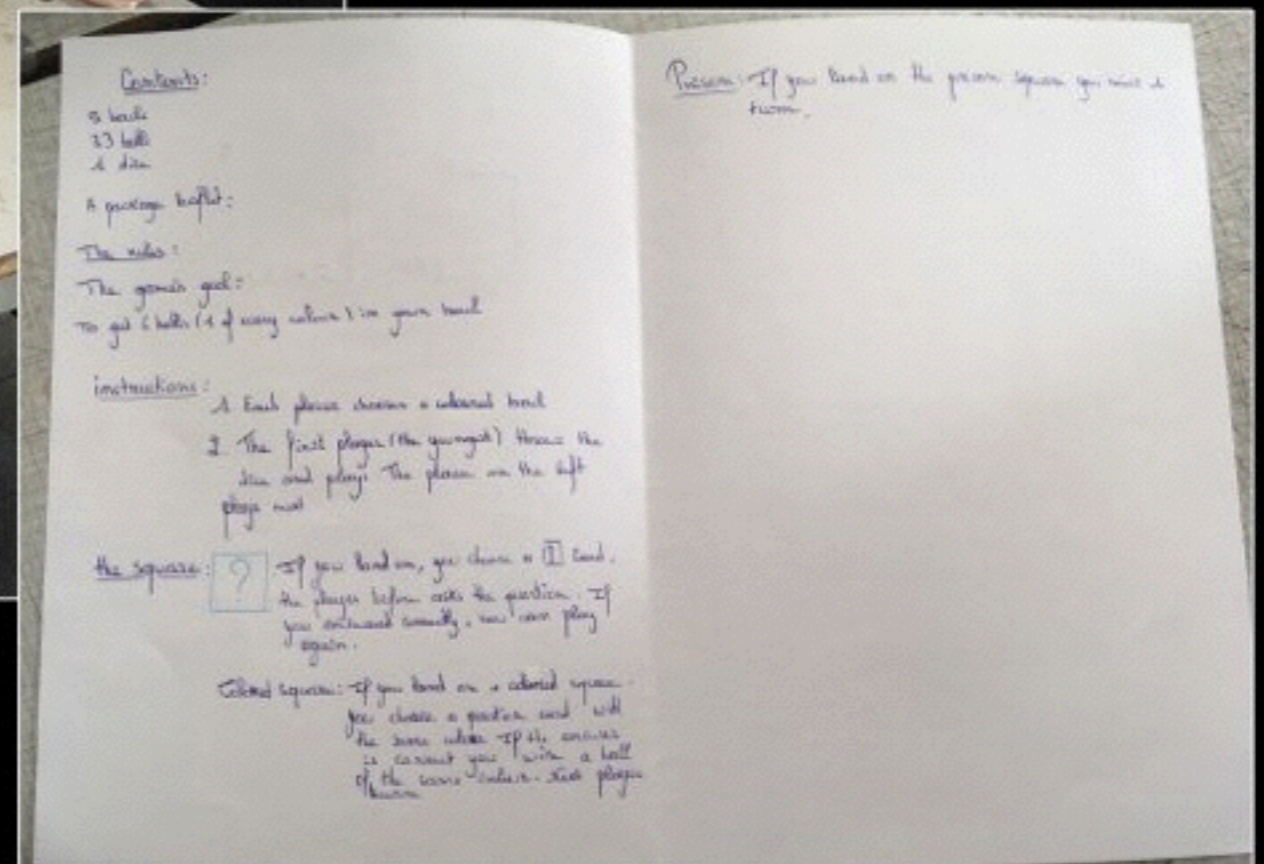 Contents:
5 bowls
33 balls
1 dice
A package leaflet:
The rules:
The game's goal:
To get 6 balls (1 of every colour) in your bowl
instructions:
1. Each player chooses a coloured bowl
2. The first player (the youngest) throws the
dice and plays The player on the left
plays next
the square: ? If you land on, you choose a ? card.
the player before asks the question. If
you answered correctly, you can play
again.
Colored square: If you land on a colored square
you choose a question card with
the same colour If the answer
is correct you win a ball
of the same colour. Next player
turn
Prison: If you land on the prison square you miss 1
turn.